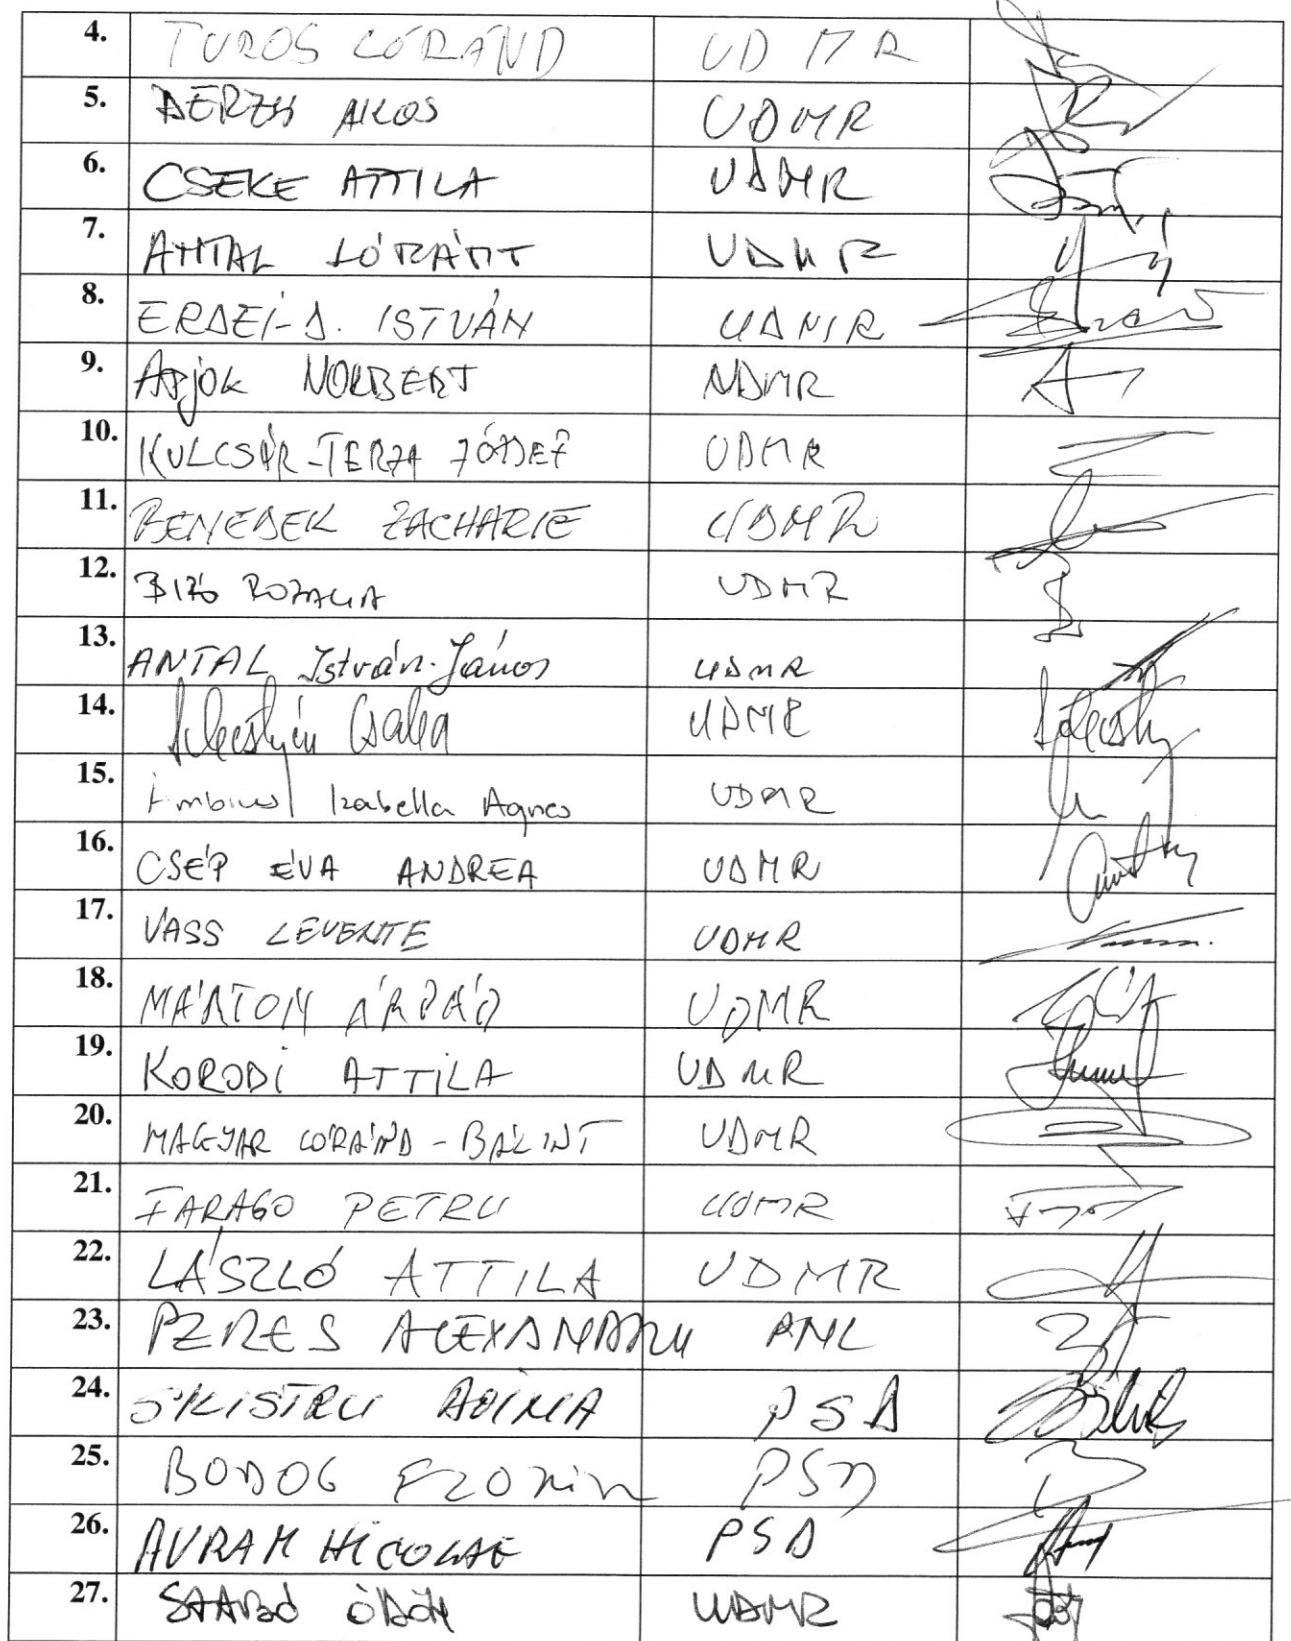 4. TUROS LÓRÁND UDMR
5. DERZSI AKOS UDMR
6. CSEKE ATTILA UDMR
7. ANTAL LÓRÁNT UDMR
8. ERDEI-D. ISTVÁN UDMR
9. APJOK NORBERT UDMR
10. KULCSÁR-TERZA JÓZSEF UDMR
11. BENEDEK ZACHARIE UDMR
12. BIRÓ ROZALIA UDMR
13. ANTAL István-János UDMR
14. Sebestyén Csaba UDMR
15. Ambrus Izabella Agnes UDMR
16. CSÉP ÉVA ANDREA UDMR
17. VASS LEVENTE UDMR
18. MÁRTON ÁRPÁD UDMR
19. KORODI ATTILA UDMR
20. MAGYAR LÓRÁND-BÁLINT UDMR
21. FARAGO PETRU UDMR
22. LÁSZLÓ ATTILA UDMR
23. PERES ALEXANDRU PNL
24. SILISTRU DOINA PSD
25. BODOG FLORIN PSD
26. AVRAM NICOLAE PSD
27. SZABÓ ÖDÖN UDMR